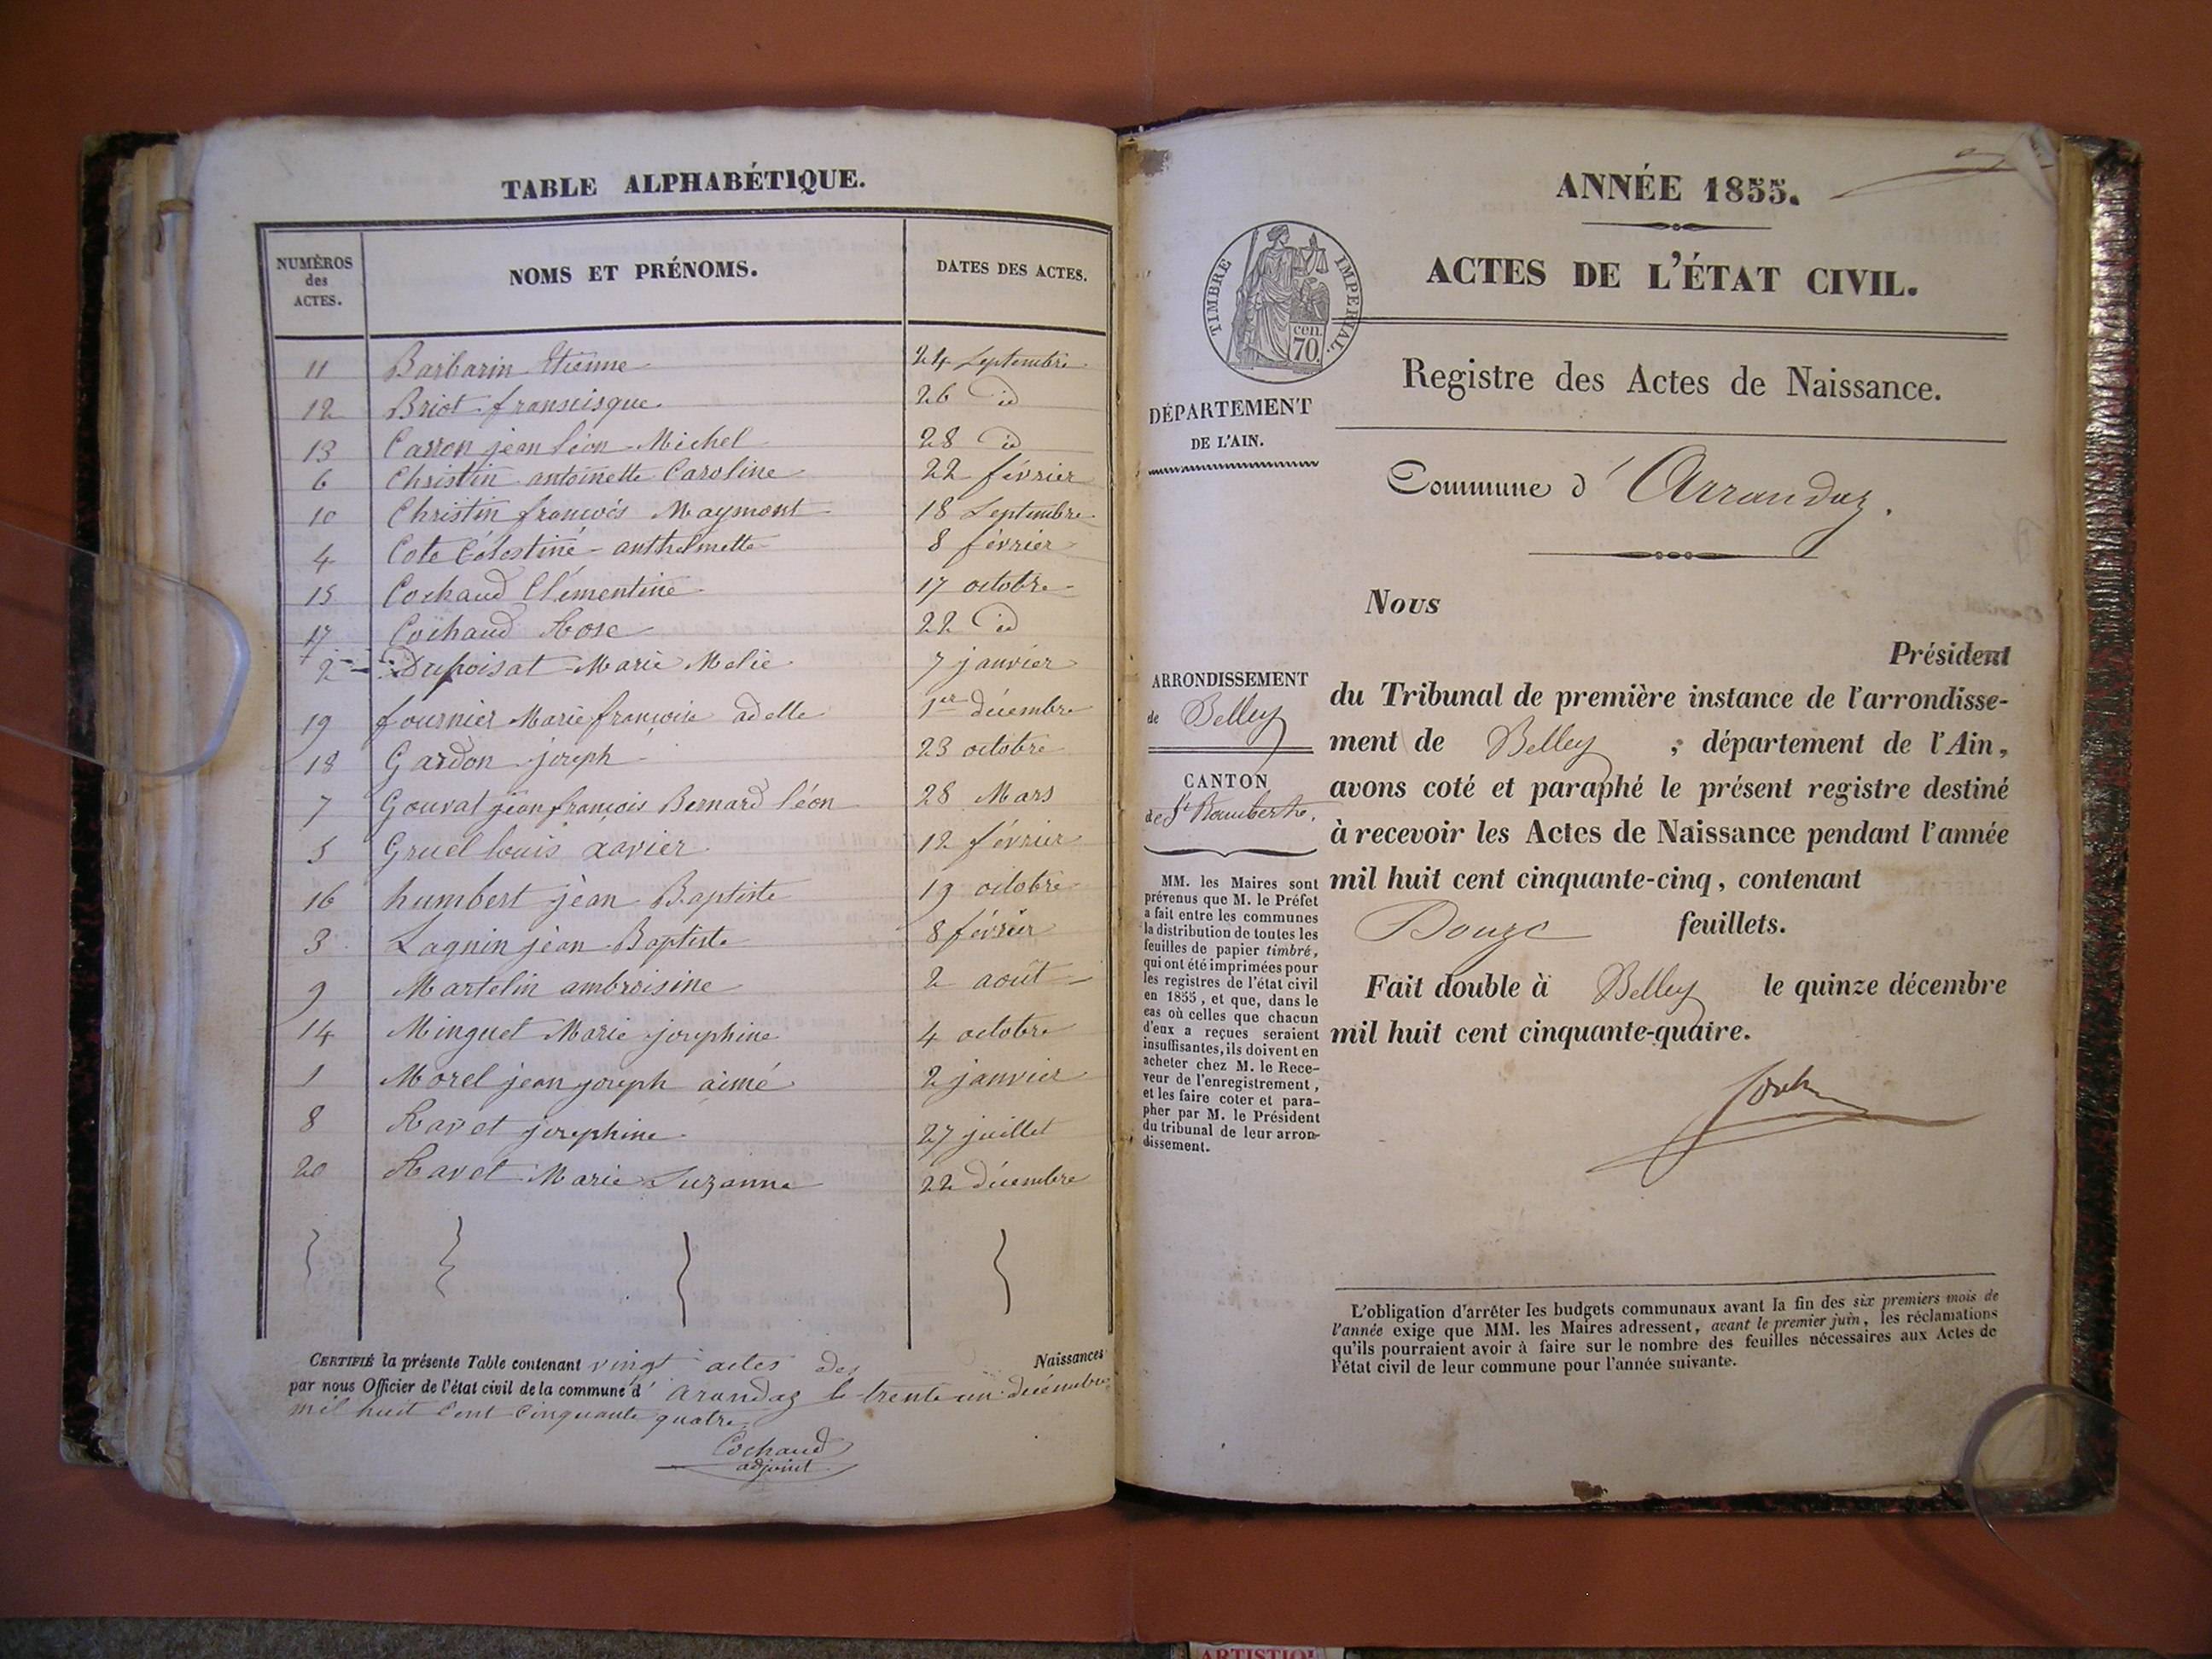 TABLE ALPHABÉTIQUE.
NUMÉROS
des
ACTES.
NOMS ET PRÉNOMS.
DATES DES ACTES.
11 Barbarin Etienne 24 Septembre
12 Briot francisque 26 id
13 Carron jean léon Michel 28 id
6 Christin antoinette Caroline 22 février
10 Christin françois Raymont 18 Septembre
4 Cote Célestine anthelmette 8 février
15 Cochaud Clémentine 17 octobre
17 Cochaud Rose 22 id
2 Dupoisat Marie Melie 7 janvier
19 fournier Marie françoise adelle 1er décembre
18 Gardon joseph 23 octobre
7 Gouvat jean françois Bernard léon 28 Mars
5 Gruel louis xavier 12 février
16 humbert jean Baptiste 19 octobre
3 Lagnin jean Baptiste 8 février
9 Martelin ambroisine 2 août
14 Minguet Marie josephine 4 octobre
1 Morel jean joseph aimé 2 janvier
8 Ravet josephine 27 juillet
20 Ravet Marie Suzanne 22 décembre
CERTIFIÉ la présente Table contenant vingt actes des Naissances
par nous Officier de l'état civil de la commune d' arandaz le trente un décembre
mil huit Cent Cinquante quatre
Cochaud
adjoint
ANNÉE 1855.
TIMBRE IMPÉRIAL.
cen.
70.
ACTES DE L'ÉTAT CIVIL.
Registre des Actes de Naissance.
DÉPARTEMENT
DE L'AIN.
Commune d' Arrandaz.
Nous
Président
ARRONDISSEMENT
de Belley
CANTON
de St Rambert.
du Tribunal de première instance de l'arrondisse-
ment de Belley , département de l'Ain,
avons coté et paraphé le présent registre destiné
à recevoir les Actes de Naissance pendant l'année
mil huit cent cinquante-cinq, contenant
Douze feuillets.
Fait double à Belley le quinze décembre
mil huit cent cinquante-quatre.
MM. les Maires sont
prévenus que M. le Préfet
a fait entre les communes
la distribution de toutes les
feuilles de papier timbré,
qui ont été imprimées pour
les registres de l'état civil
en 1855, et que, dans le
cas où celles que chacun
d'eux a reçues seraient
insuffisantes, ils doivent en
acheter chez M. le Rece-
veur de l'enregistrement,
et les faire coter et para-
pher par M. le Président
du tribunal de leur arron-
dissement.
L'obligation d'arrêter les budgets communaux avant la fin des six premiers mois de
l'année exige que MM. les Maires adressent, avant le premier juin, les réclamations
qu'ils pourraient avoir à faire sur le nombre des feuilles nécessaires aux Actes de
l'état civil de leur commune pour l'année suivante.